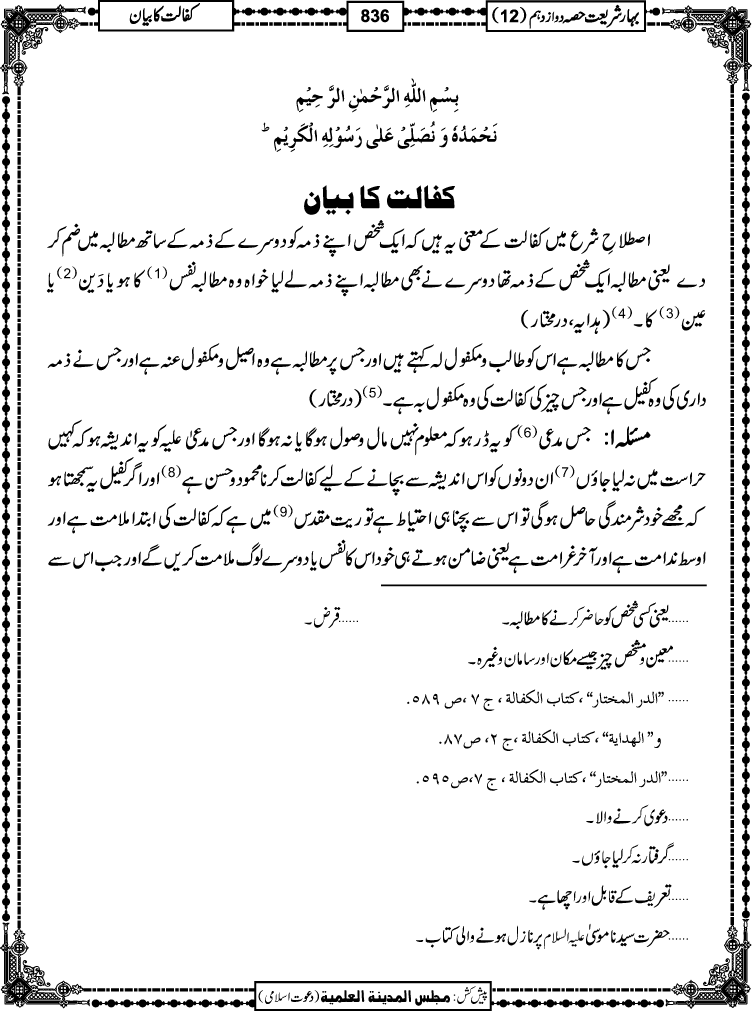 بہار شریعت حصہ دوازدہم (12)
836
کفالت کا بیان
بِسْمِ اللّٰهِ الرَّحْمٰنِ الرَّ حِیْمِ
نَحْمَدُهٗ وَ نُصَلِّیْ عَلٰی رَسُوْلِهِ الْکَرِیْمِ ؕ
کفالت کا بیان
اصطلاحِ شرع میں کفالت کے معنی یہ ہیں کہ ایک شخص اپنے ذمہ کو دوسرے کے ذمہ کے ساتھ مطالبہ میں ضم کر
دے یعنی مطالبہ ایک شخص کے ذمہ تھا دوسرے نے بھی مطالبہ اپنے ذمہ لے لیا خواہ وہ مطالبہ نفس(1) کا ہو یا دَین(2) یا
عین(3) کا۔(4) (ہدایہ، درمختار)
جس کا مطالبہ ہے اس کو طالب و مکفول لہ کہتے ہیں اور جس پر مطالبہ ہے وہ اصیل و مکفول عنہ ہے اور جس نے ذمہ
داری کی وہ کفیل ہے اور جس چیز کی کفالت کی وہ مکفول بہ ہے۔(5) (درمختار)
مسئلہ ۱: جس مدعی(6) کو یہ ڈر ہو کہ معلوم نہیں مال وصول ہوگا یا نہ ہوگا اور جس مدعیٰ علیہ کو یہ اندیشہ ہو کہ کہیں
حراست میں نہ لیا جاؤں(7) ان دونوں کو اس اندیشہ سے بچانے کے لیے کفالت کرنا محمود و حسن ہے(8) اور اگر کفیل یہ سمجھتا ہو
کہ مجھے خود شرمندگی حاصل ہوگی تو اس سے بچنا ہی احتیاط ہے توریت مقدس(9) میں ہے کہ کفالت کی ابتدا ملامت ہے اور
اوسط ندامت ہے اور آخر غرامت ہے یعنی ضامن ہوتے ہی خود اس کا نفس یا دوسرے لوگ ملامت کریں گے اور جب اس سے
......یعنی کسی شخص کو حاضر کرنے کا مطالبہ۔ ......قرض۔
......معین و مشخص چیز جیسے مکان اور سامان وغیرہ۔
...... "الدر المختار"، کتاب الکفالة، ج ۷، ص ۵۸۹.
و "الھدایة"، کتاب الکفالة، ج ۲، ص ۸۷.
......"الدر المختار"، کتاب الکفالة، ج ۷، ص ۵۹۵.
......دعوی کرنے والا۔
......گرفتار نہ کر لیا جاؤں۔
......تعریف کے قابل اور اچھا ہے۔
......حضرت سیدنا موسیٰ علیہ السلام پر نازل ہونے والی کتاب۔
پیش کش: مجلس المدینة العلمیة (دعوت اسلامی)